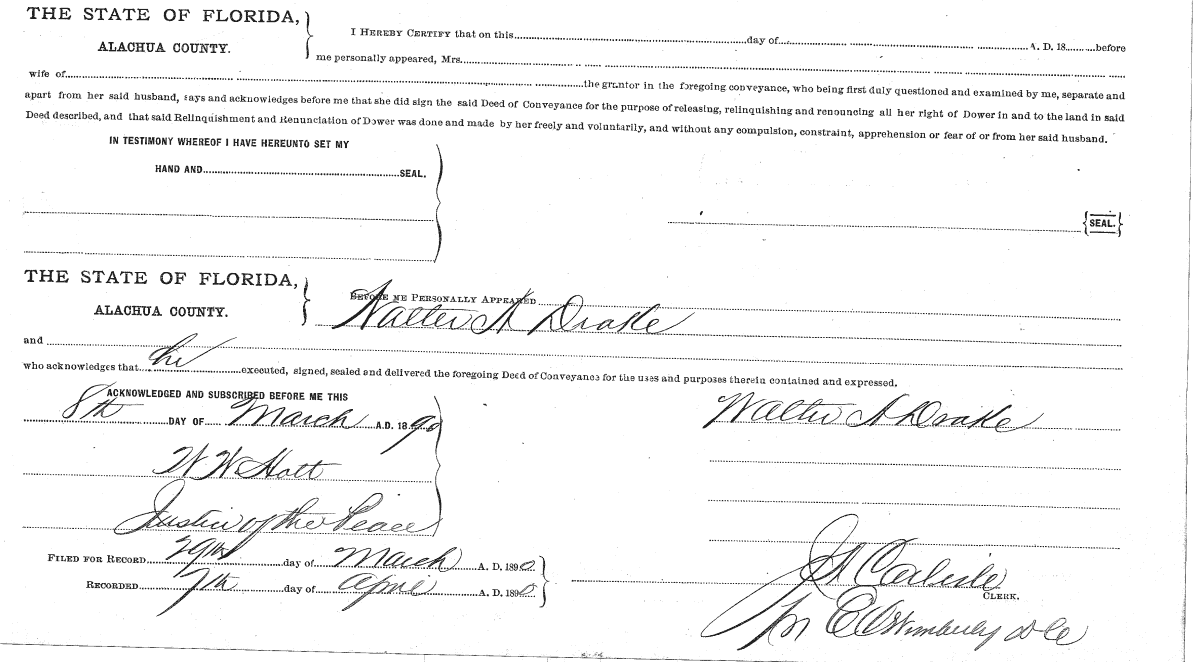 THE STATE OF FLORIDA,
ALACHUA COUNTY.
I HEREBY CERTIFY that on this day of A. D. 18 before
me personally appeared, Mrs.
wife of the grantor in the foregoing conveyance, who being first duly questioned and examined by me, separate and
apart from her said husband, says and acknowledges before me that she did sign the said Deed of Conveyance for the purpose of releasing, relinquishing and renouncing all her right of Dower in and to the land in said
Deed described, and that said Relinquishment and Renunciation of Dower was done and made by her freely and voluntarily, and without any compulsion, constraint, apprehension or fear of or from her said husband.
IN TESTIMONY WHEREOF I HAVE HEREUNTO SET MY
HAND AND SEAL.
SEAL.
THE STATE OF FLORIDA,
ALACHUA COUNTY.
BEFORE ME PERSONALLY APPEARED
Walter N Drake
and
who acknowledges that he executed, signed, sealed and delivered the foregoing Deed of Conveyance for the uses and purposes therein contained and expressed.
ACKNOWLEDGED AND SUBSCRIBED BEFORE ME THIS
8th DAY OF March A.D. 1890
Walter N Drake
W W
Justice of the Peace
FILED FOR RECORD 29th day of March A. D. 1890
RECORDED 7th day of April A. D. 1890
Carlisle
CLERK.
Wimberly D C